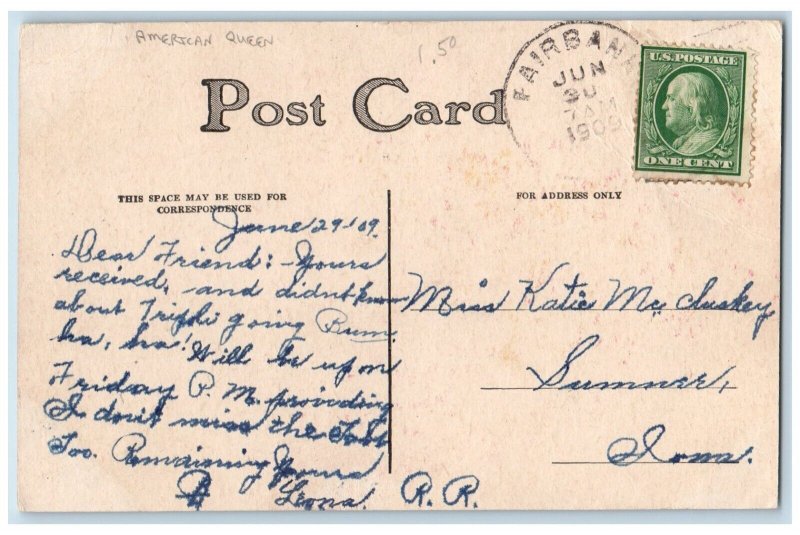 AMERICAN QUEEN
1.50
Post Card
FAIRBANK
JUN
30
7 AM
1909
U.S. POSTAGE
ONE CENT
THIS SPACE MAY BE USED FOR
CORRESPONDENCE
FOR ADDRESS ONLY
June 29-'09.
Dear Friend:- Yours
received, and didn't know
about Triphi going Bum.
ha, ha! Will be up on
Friday P.M. providing
I don't miss the
Too. Remaining Yours
Leona.
Miss Katie Mc Cluskey
Sumner,
Iowa.
R.R.